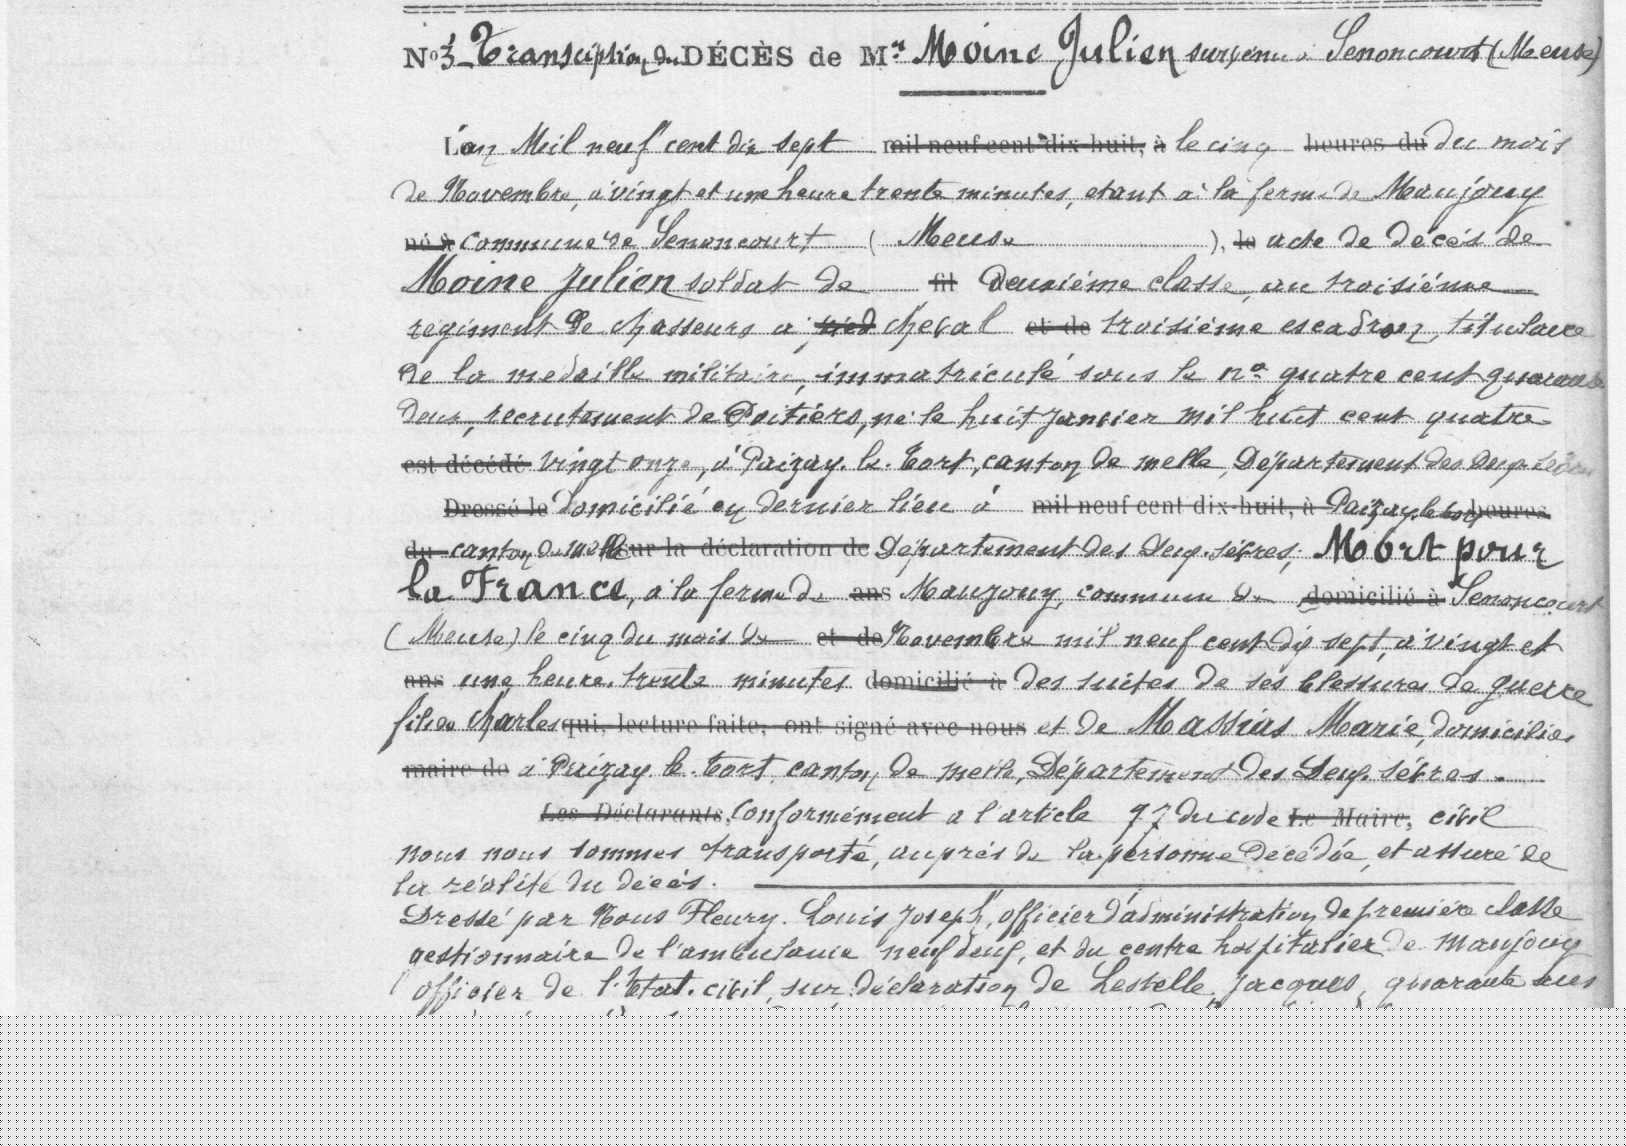 N° 3 Transcription du DÉCÈS de Mr Moine Julien survenu à Senoncourt (Meuse)
L'an Mil neuf cent dix sept mil neuf cent dix-huit, à le cinq heures du du mois
de Novembre, à vingt et une heure trente minutes, etant à la ferme de Maujouy
né à commune de Senoncourt (Meuse), le acte de décès de
Moine Julien soldat de fil deuxième classe, au troisième
régiment de chasseurs à pied cheval et de troisième escadron, titulaire
de la medaille militaire, immatriculé sous le n° quatre cent quarante
deux, recrutement de Poitiers, né le huit janvier mil huit cent quatre
est décédé vingt onze, à Paizay-le-Tort, canton de melle, Département des deux Sèvres
Dressé le domicilié en dernier lieu à mil neuf cent dix-huit, à Paizay le tort heures
du canton de melle sur la déclaration de Département des Deux-Sèvres, Mort pour
la France, à la ferme de ans Maujouy, commune de domicilié à Senoncourt
(Meuse) le cinq du mois de et de Novembre mil neuf cent dix sept, à vingt et
ans une heure trente minutes domicilié à des suites de ses blessures de guerre
fils de Charles qui, lecture faite, ont signé avec nous et de Massias Marie, domiciliés
maire de à Paizay-le-Tort, canton de melle, Département des Deux-Sèvres.
Les Déclarants, Conformément a l'article 77 du code Le Maire, civil
nous nous sommes transporté, auprès de la personne décédée, et assuré de
la réalité du décès.
Dressé par Nous Fleury Louis Joseph, officier d'administration de première classe
gestionnaire de l'ambulance neuf deux, et du centre hospitalier de Maujouy
officier de l'Etat-civil, sur déclaration de Lestelle Jacques, quarante ans